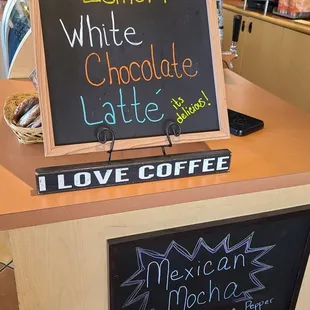 White
Chocolate
Latté
its
delicious!
I LOVE COFFEE
Mexican
Mocha
Pepper